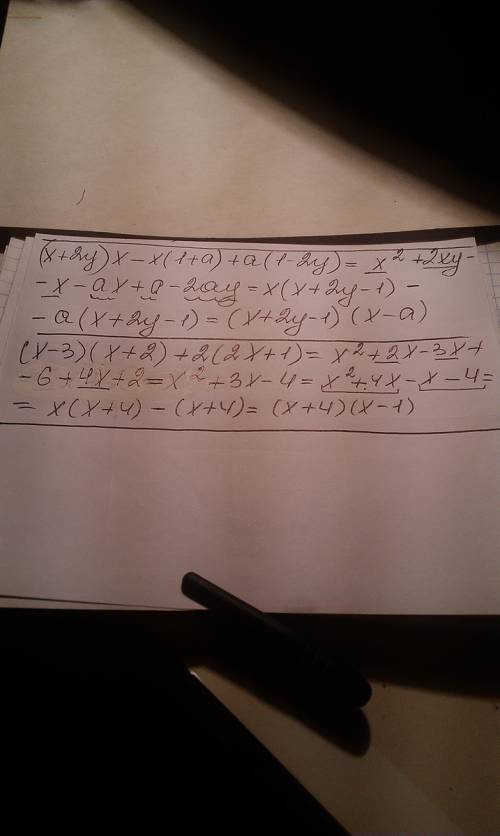 (x+2y)x-x(1+a)+a(1-2y)= x² +2xy-
-x-ax+a-2ay=x(x+2y-1)-
-a(x+2y-1)=(x+2y-1)(x-a)
(x-3)(x+2)+2(2x+1)= x²+2x-3x+
-6+4x+2=x²+3x-4=x²+4x-x-4=
= x(x+4)-(x+4)= (x+4)(x-1)